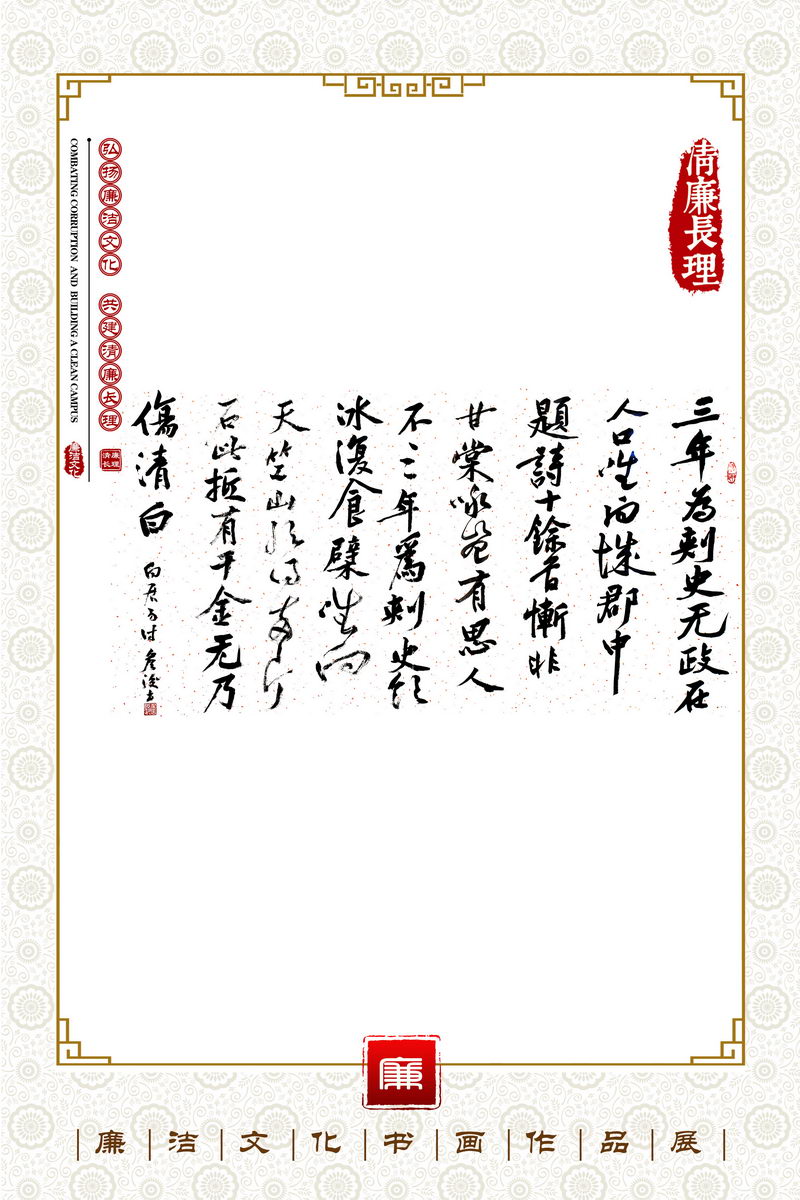 清廉長理
弘扬廉洁文化 共建清廉长理
COMBATING CORRUPTION AND BUILDING A CLEAN CAMPUS
廉洁文化
清廉长理
三年为刺史无政在
人口唯向城郡中
題詩十餘首慚非
甘棠咏豈有思人
不三年為刺史飲
冰復食檗唯向
天竺山取得两片
石此抵有千金无乃
傷清白
白居易诗
廉
廉洁文化书画作品展